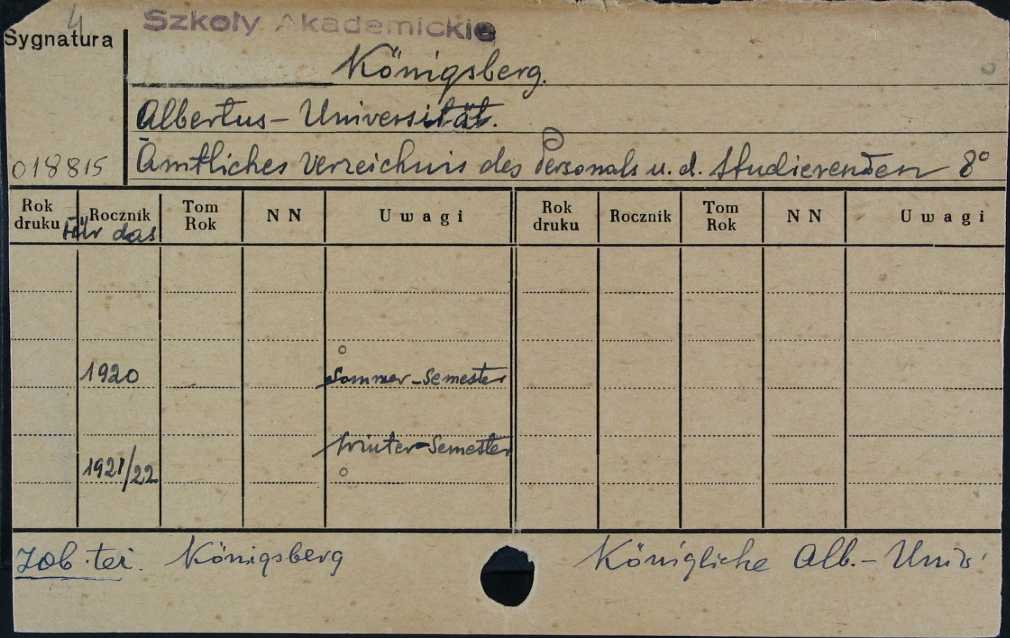 4
Szkoły Akademickie
Sygnatura
Königsberg.
Albertus-Universität.
018815
Amtliches Verzeichnis des Personals u. d. Studierenden 8°
Rok druku Rocznik Tom Rok N N Uwagi Rok druku Rocznik Tom Rok N N Uwagi
Für das
1920 Sommer-Semester
1921/22 Winter-Semester
zob. też. Königsberg Königliche Alb.-Univ.